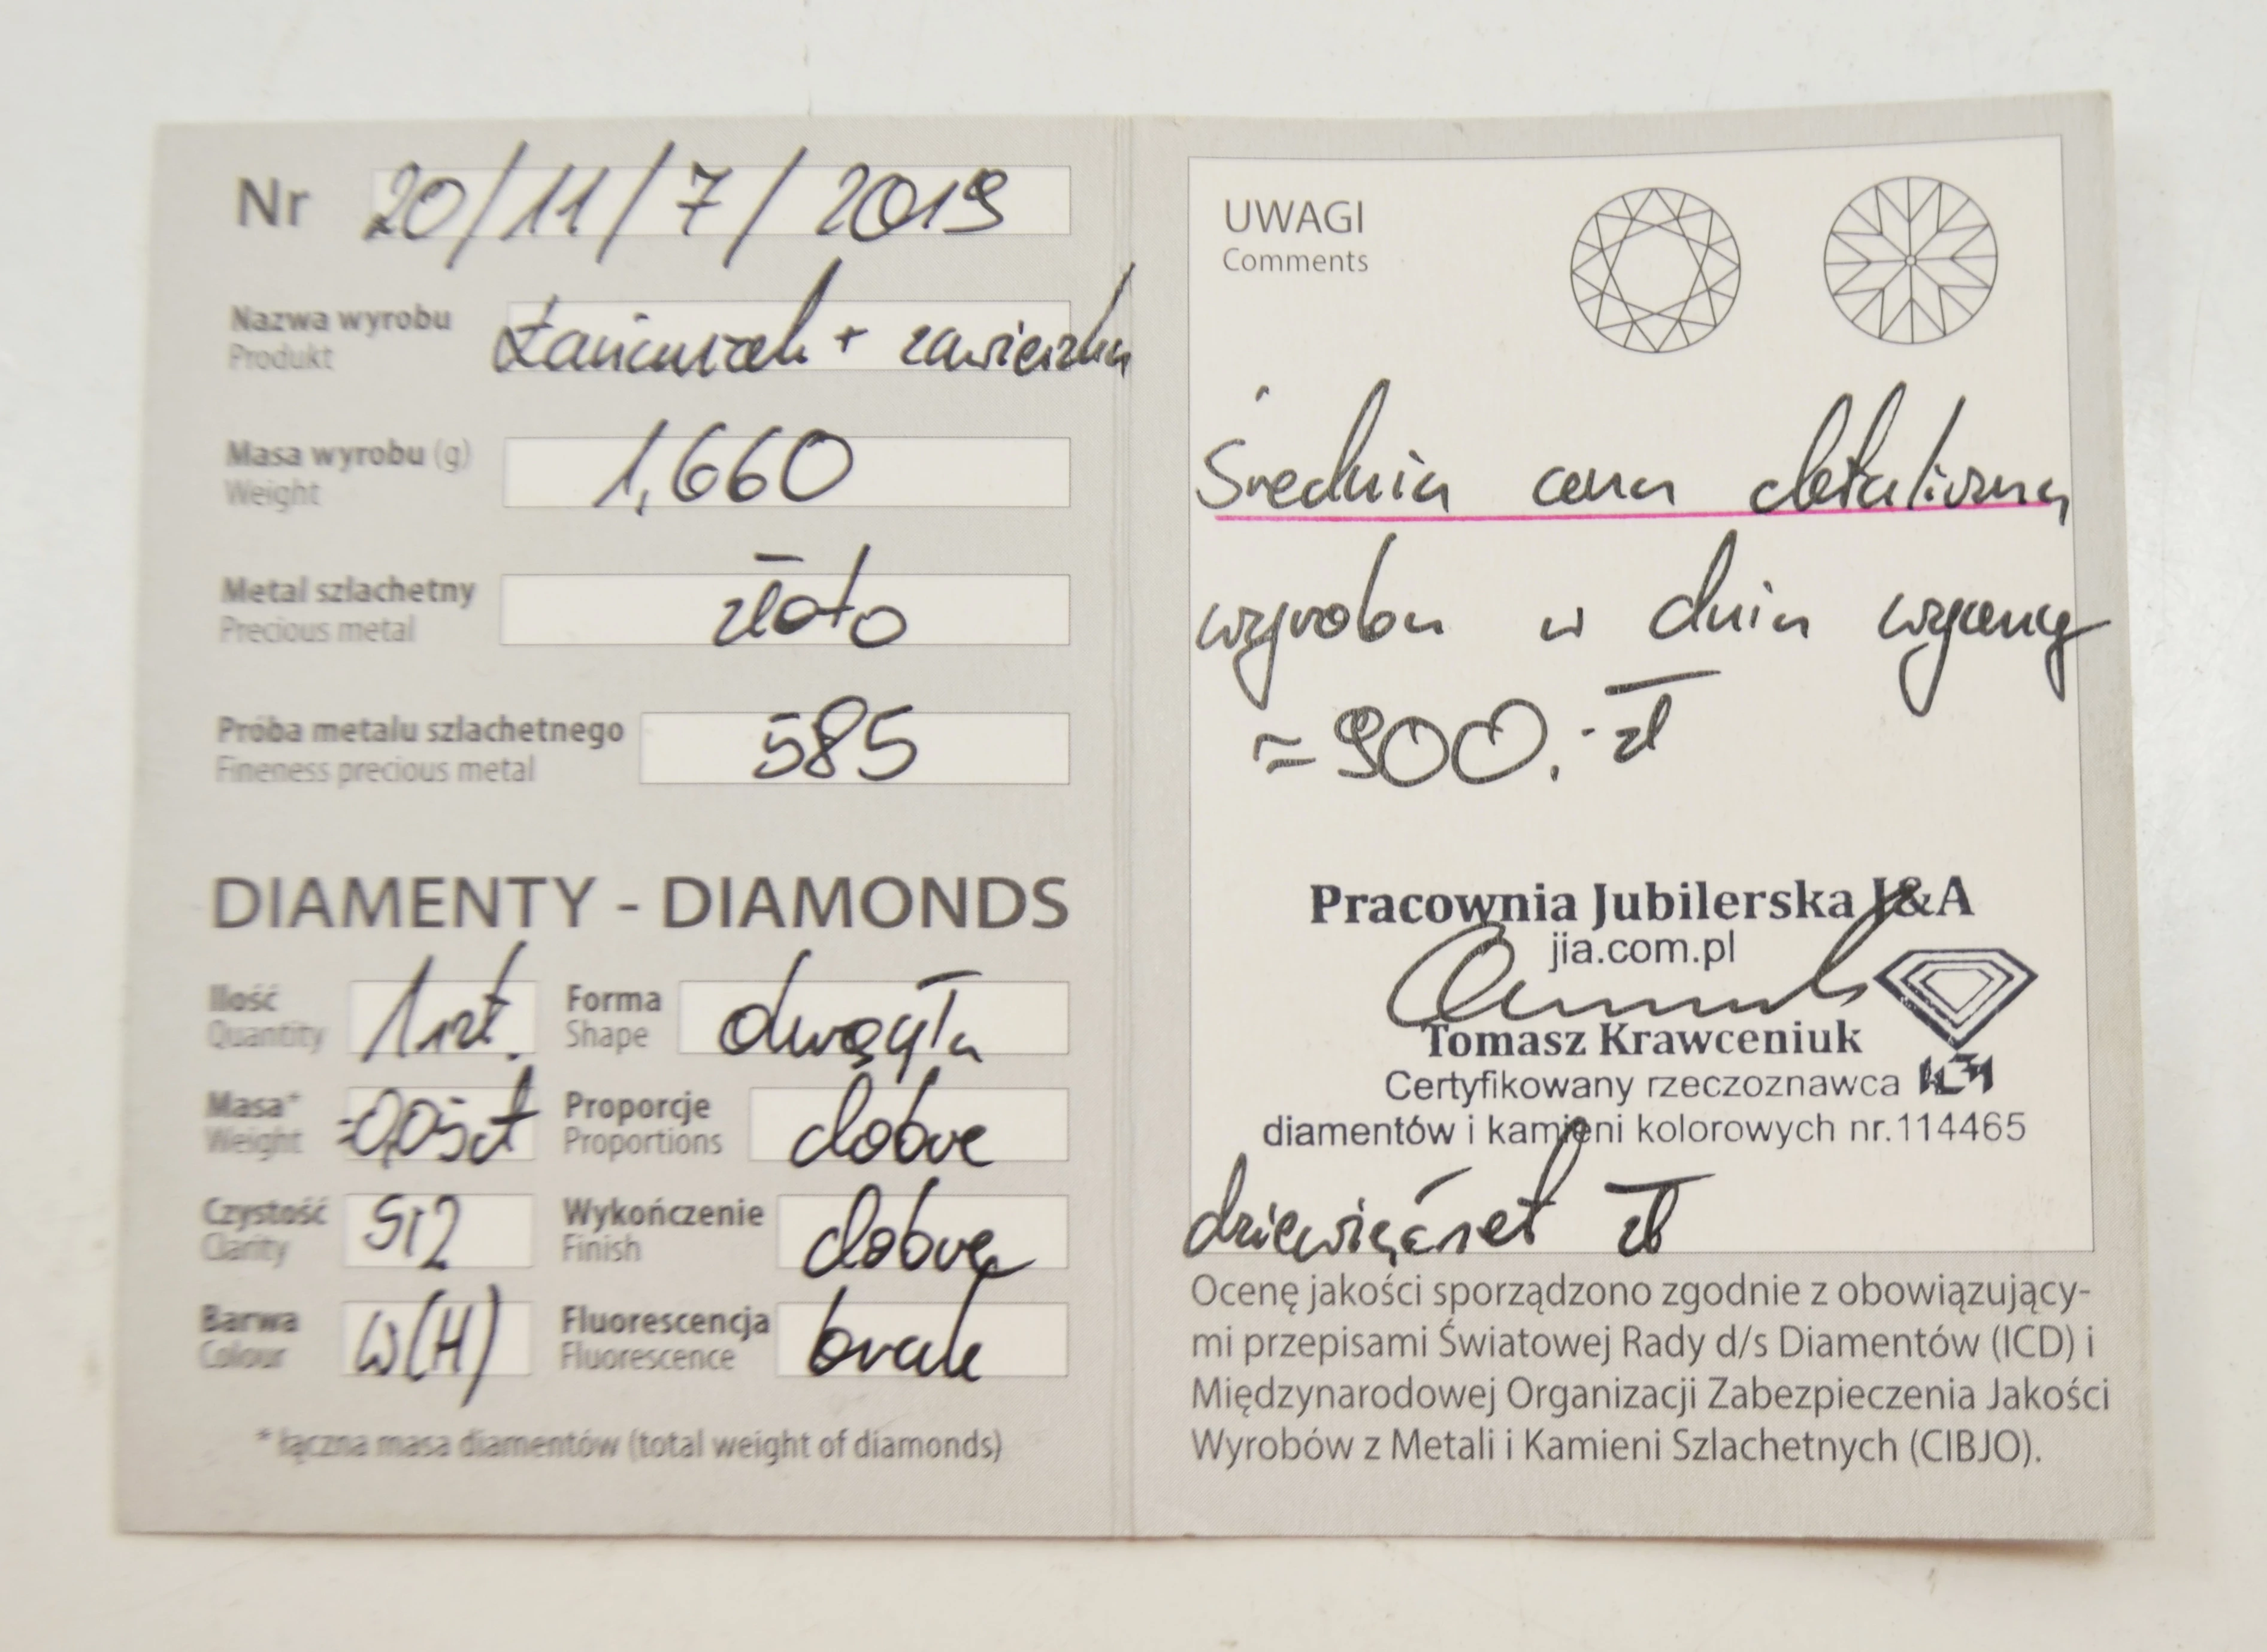 Nr 20/11/7/2019
Nazwa wyrobu Łańcuszek + zawieszka
Produkt
Masa wyrobu (g) 1,660
Weight
Metal szlachetny złoto
Precious metal
Próba metalu szlachetnego 585
Fineness precious metal
DIAMENTY - DIAMONDS
Ilość 1 szt. Forma okrągła
Quantity Shape
Masa* ≈0,05ct Proporcje dobre
Weight Proportions
Czystość SI2 Wykończenie dobre
Clarity Finish
Barwa W(H) Fluorescencja brak
Colour Fluorescence
* łączna masa diamentów (total weight of diamonds)
UWAGI
Comments
Średnia cena detaliczna
wyrobu w dniu wyceny
≈ 900,- zł
Pracownia Jubilerska J&A
jia.com.pl
Tomasz Krawceniuk
Certyfikowany rzeczoznawca
diamentów i kamieni kolorowych nr.114465
dziewięćset zł
Ocenę jakości sporządzono zgodnie z obowiązujący-
mi przepisami Światowej Rady d/s Diamentów (ICD) i
Międzynarodowej Organizacji Zabezpieczenia Jakości
Wyrobów z Metali i Kamieni Szlachetnych (CIBJO).